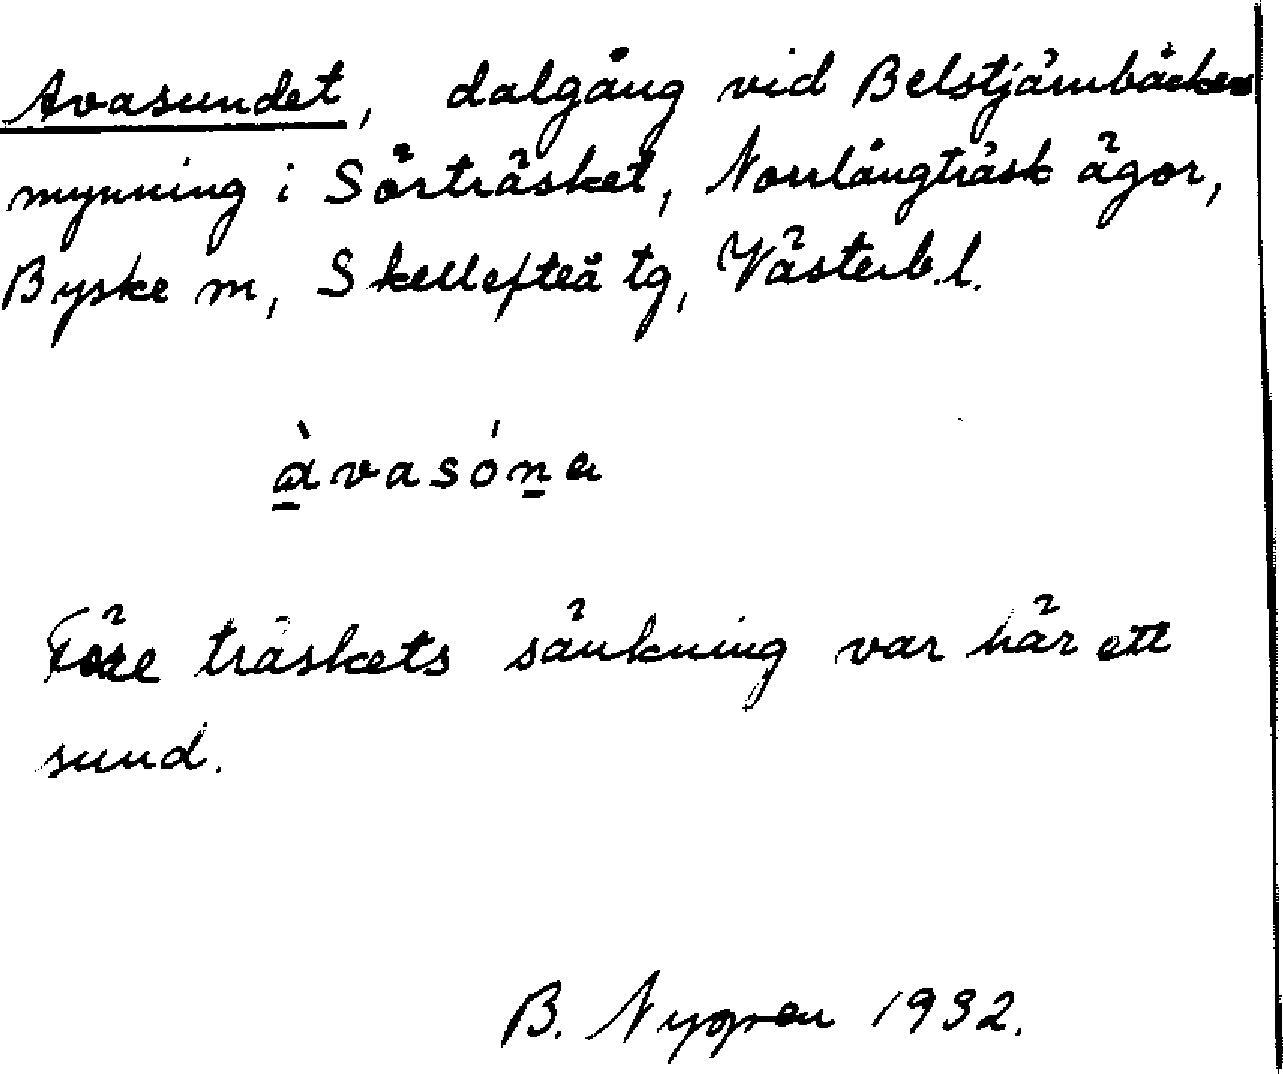 Avasundet, dalgång vid Belstjärnbäckens
mynning i Sörträsket, Norrlångträsk ägor,
Byske sn, Skellefteå tg, Västerb. l.
àvasón̲a
Före träskets sänkning var här ett
sund.
B. Nygren 1932.